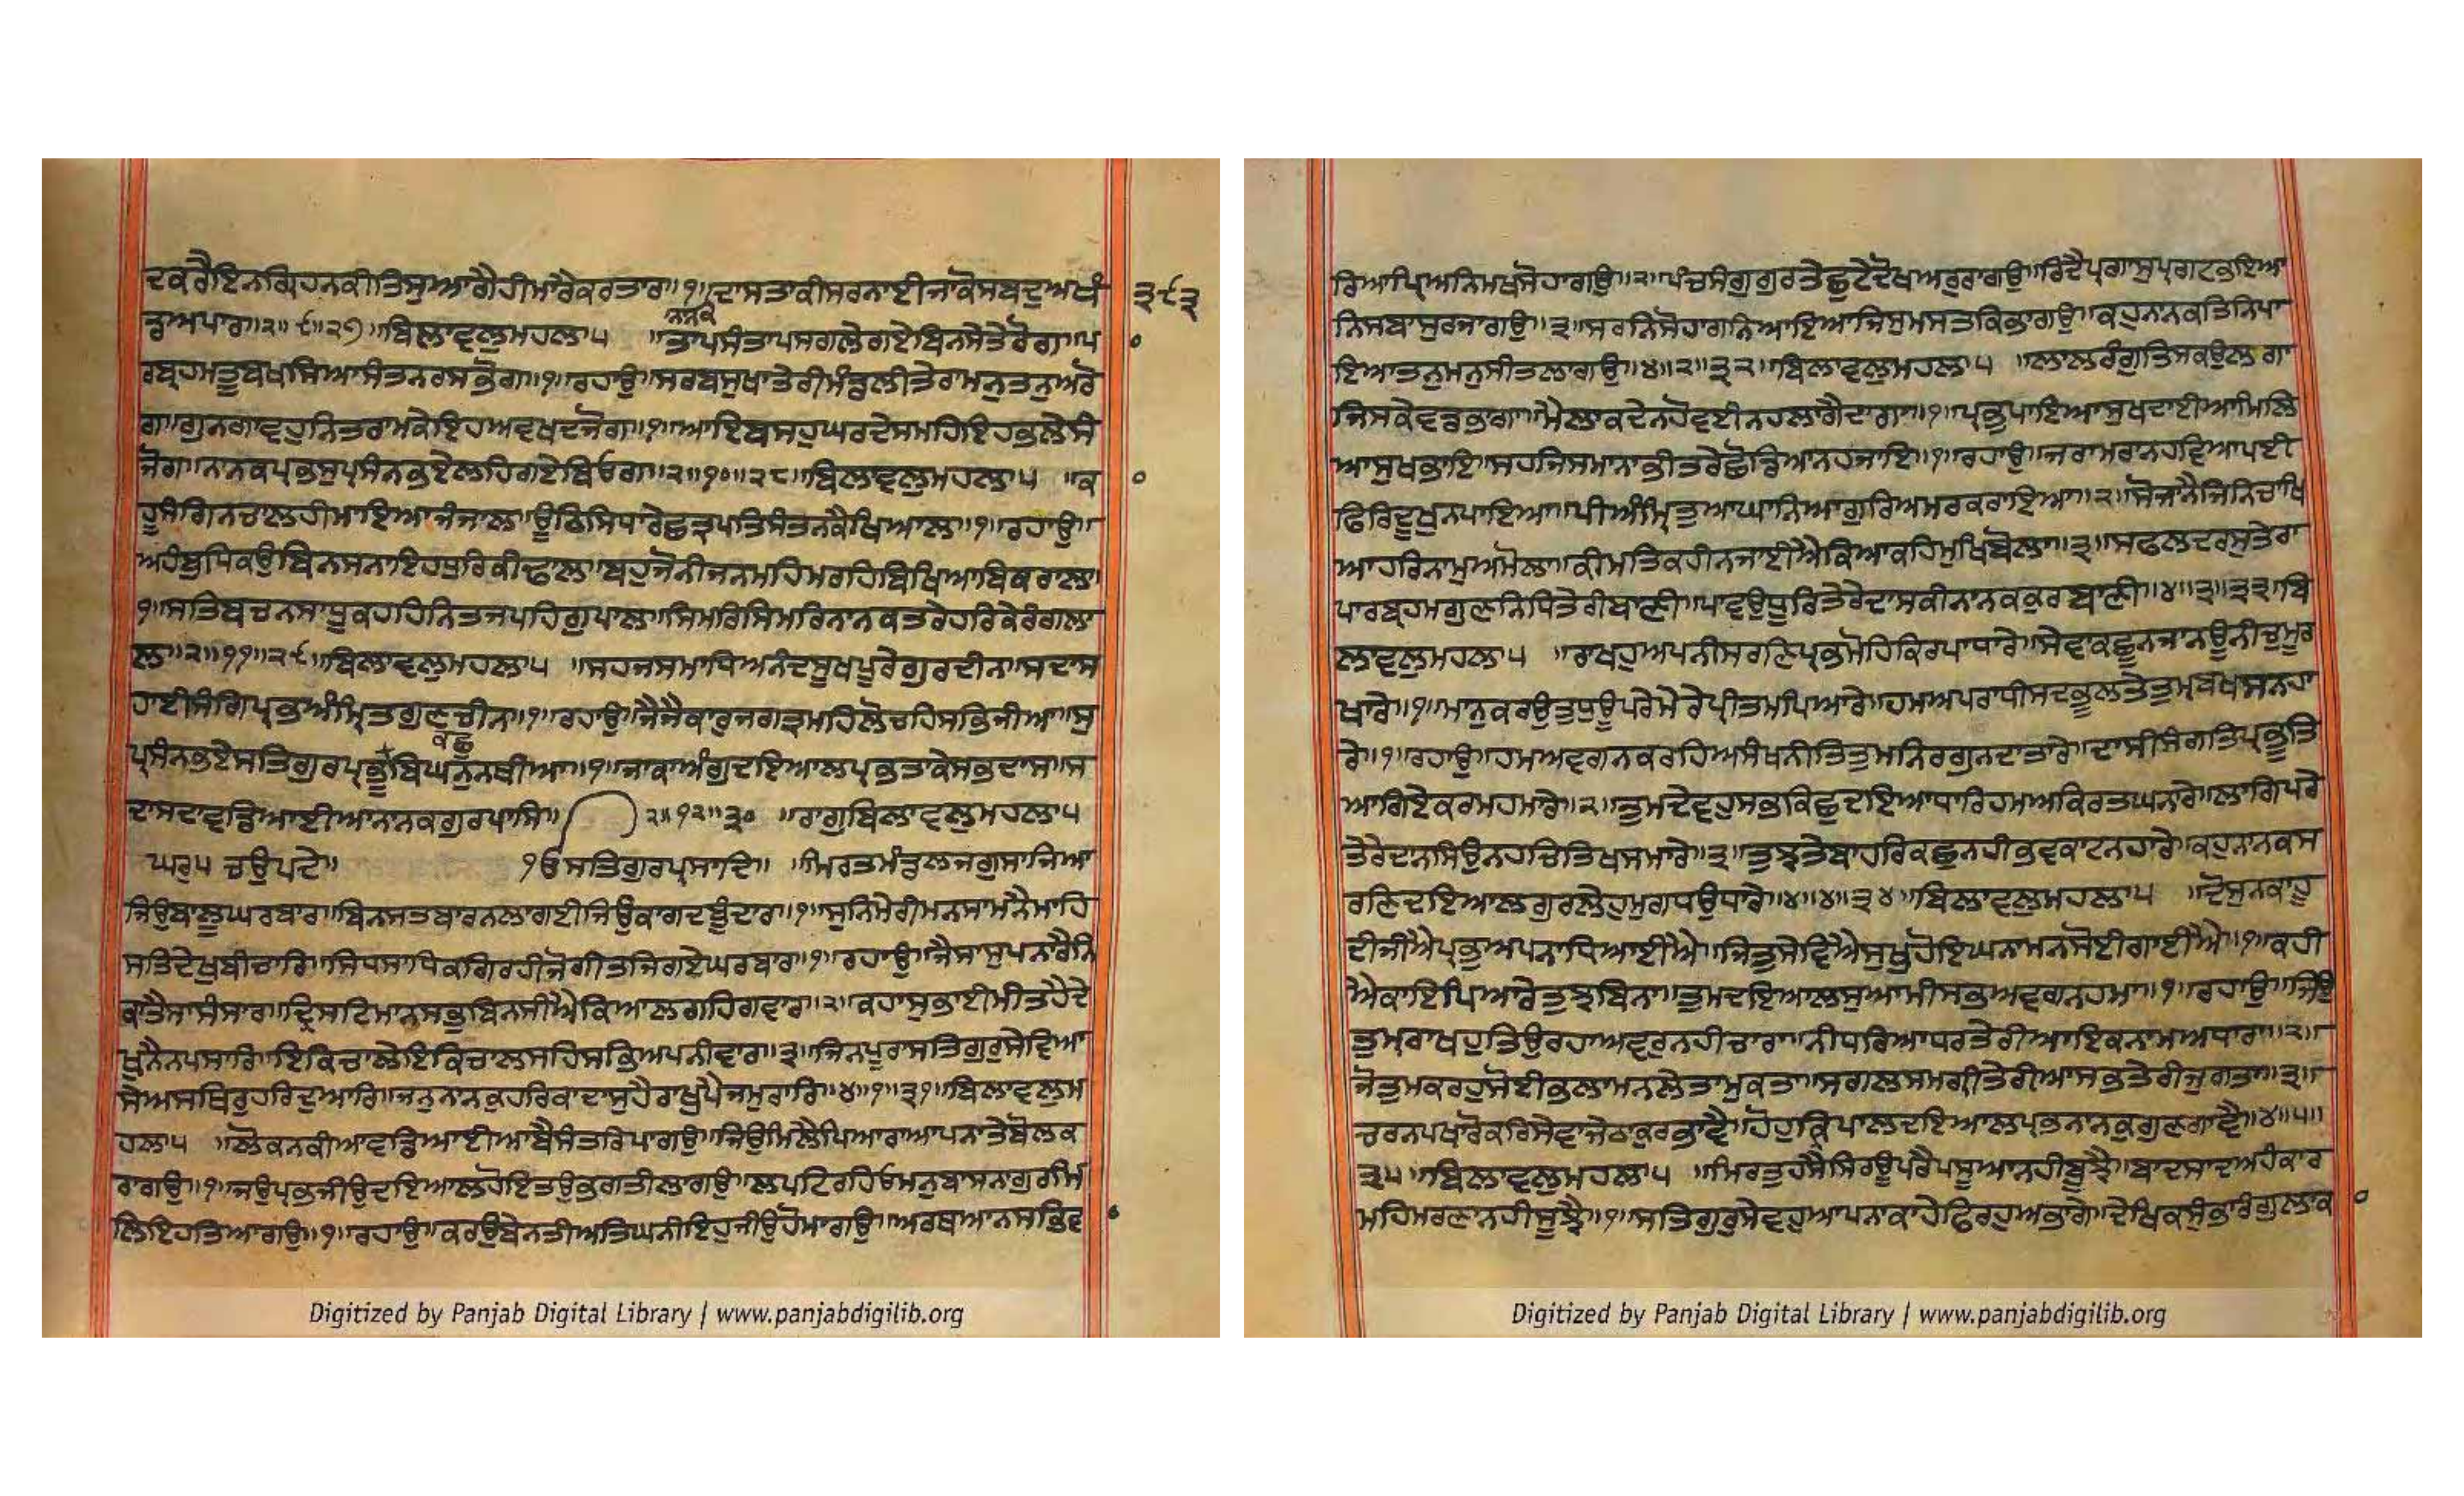 ਦਕਰੈਇਨਗ੍ਰਿਹਨਕੀਤਿਸੁਆਗੈਹੀਮਾਰੈਕਰਤਾਰਾ॥੧॥ਦਾਸਤਾਕੀਸਰਨਾਈਜਾਕੋਸਬਦੁਅਖੰ
੩੯੩
ਨਾਨਕ
ਡੁਅਪਾਰਾ॥੨॥੯॥੨੭॥ਬਿਲਾਵਲੁਮਹਲਾ੫ ॥ਤਾਪਸੰਤਾਪਸਗਲੇਗਏਬਿਨਸੇਤੇਰੋਗ॥ਪਾ
ਰਬ੍ਰਹਮਤੂਬਖਸਿਆਸੰਤਨਰਸਭੋਗ॥੧॥ਰਹਾਉ॥ਸਰਬਸੁਖਾਤੇਰੀਮੰਡਲੀਤੇਰਾਮਨੁਤਨੁਅਰੋ
ਗ॥ਗੁਨਗਾਵਹੁਨਿਤਰਾਮਕੇਇਹਅਵਖਦਜੋਗ॥੧॥ਆਇਬਸਹੁਘਰਦੇਸਮਹਿਇਹਭਲੇਸੰ
ਜੋਗ॥ਨਾਨਕਪ੍ਰਭਸੁਪ੍ਰਸੰਨਭਏਲਹਿਗਏਬਿਓਗ॥੨॥੧੦॥੨੮॥ਬਿਲਾਵਲੁਮਹਲਾ੫ ॥ਕਾ
ਹੂਸੰਗਿਨਚਾਲਹੀਮਾਇਆਜੰਜਾਲ॥ਊਠਿਸਿਧਾਰੇਛਤ੍ਰਪਤਿਸੰਤਨਕੈਖਿਆਲ॥੧॥ਰਹਾਉ॥
ਅਹੰਬੁਧਿਕਉਬਿਨਸਨਾਇਹਧੁਰਿਕੀਢਾਲ॥ਬਹੁਜੋਨੀਜਨਮਹਿਮਰਹਿਬਿਖਿਆਬਿਕਰਾਲ॥
੧॥ਸਤਿਬਚਨਸਾਧੂਕਹਹਿਨਿਤਜਪਹਿਗੁਪਾਲ॥ਸਿਮਰਿਸਿਮਰਿਨਾਨਕਤਰੇਹਰਿਕੇਰੰਗਲਾ
ਲ॥੨॥੧੧॥੨੯॥ਬਿਲਾਵਲੁਮਹਲਾ੫ ॥ਸਹਜਸਮਾਧਿਅਨੰਦਸੂਖਪੂਰੇਗੁਰਦੀਨ॥ਸਦਾਸ
ਹਾਈਸੰਗਿਪ੍ਰਭਅੰਮ੍ਰਿਤਗੁਣਚੀਨ॥੧॥ਰਹਾਉ॥ਜੈਜੈਕਾਰੁਜਗਤ੍ਰਮਹਿਲੋਚਹਿਸਭਿਜੀਆ॥ਸੁ
ਕਛੁ
ਪ੍ਰਸੰਨਭਏਸਤਿਗੁਰਪ੍ਰਭੂਬਿਘਨੁਨਥੀਆ॥੧॥ਜਾਕਾਅੰਗੁਦਇਆਲਪ੍ਰਭਤਾਕੇਸਭਦਾਸ॥ਸ
ਦਾਸਦਾਵਡਿਆਈਆਨਾਨਕਗੁਰਪਾਸਿ॥ ੨॥੧੨॥੩੦ ॥ਰਾਗੁਬਿਲਾਵਲੁਮਹਲਾ੫
ਘਰੁ੫ ਚਉਪਦੇ॥ ੴਸਤਿਗੁਰਪ੍ਰਸਾਦਿ॥ ॥ਮਿਰਤਮੰਡਲਜਗੁਸਾਜਿਆ
ਜਿਉਬਾਲੂਘਰਬਾਰ॥ਬਿਨਸਤਬਾਰਨਲਾਗਈਜਿਉਕਾਗਦਬੂੰਦਾਰ॥੧॥ਸੁਨਿਮੇਰੀਮਨਸਾਮਨੈਮਾਹਿ
ਸਤਿਦੇਖੁਬੀਚਾਰਿ॥ਸਿਧਸਾਧਿਕਗਿਰਹੀਜੋਗੀਤਜਿਗਏਘਰਬਾਰ॥੧॥ਰਹਾਉ॥ਜੈਸਾਸੁਪਨਾਰੈਨਿ
ਕਾਤੈਸਾਸੰਸਾਰ॥ਦ੍ਰਿਸਟਿਮਾਨਸਭੁਬਿਨਸੀਐਕਿਆਲਗਹਿਗਵਾਰ॥੨॥ਕਹਾਸੁਭਾਈਮੀਤਹੈਦੇ
ਖੁਨੈਨਪਸਾਰਿ॥ਇਕਿਚਾਲੇਇਕਿਚਾਲਸਹਿਸਭਿਅਪਨੀਵਾਰ॥੩॥ਜਿਨਪੂਰਾਸਤਿਗੁਰੁਸੇਵਿਆ
ਸੇਅਸਥਿਰੁਹਰਿਦੁਆਰਿ॥ਜਨੁਨਾਨਕੁਹਰਿਕਾਦਾਸੁਹੈਰਾਖੁਪੈਜਮੁਰਾਰਿ॥੪॥੧॥੩੧॥ਬਿਲਾਵਲੁਮ
ਹਲਾ੫ ॥ਲੋਕਨਕੀਆਵਡਿਆਈਆਬੈਸੰਤਰਿਪਾਗਉ॥ਜਿਉਮਿਲੈਪਿਆਰਾਆਪਨਾਤੇਬੋਲਕ
ਰਾਗਉ॥੧॥ਜਉਪ੍ਰਭਜੀਉਦਇਆਲਹੋਇਤਉਭਗਤੀਲਾਗਉ॥ਲਪਟਿਰਹਿਓਮਨੁਬਾਸਨਾਗੁਰਮਿ
ਲਿਇਹਤਿਆਗਉ॥੧॥ਰਹਾਉ॥ਕਰਉਬੇਨਤੀਅਤਿਘਨੀਇਹੁਜੀਉਹੋਮਾਗਉ॥ਅਰਥਆਨਸਭਿਵਾ
Digitized by Panjab Digital Library | www.panjabdigilib.org
ਰਿਆਪ੍ਰਿਅਨਿਮਖਸੋਹਾਗਉ॥੨॥ਪੰਚਸੰਗੁਗੁਰਤੇਛੁਟੇਦੋਖਅਰੁਰਾਗਉ॥ਰਿਦੈਪ੍ਰਗਾਸੁਪ੍ਰਗਟਭਇਆ
ਨਿਸਬਾਸੁਰਜਾਗਉ॥੩॥ਸਰਨਿਸੋਹਾਗਨਿਆਇਆਜਿਸੁਮਸਤਕਿਭਾਗਉ॥ਕਹੁਨਾਨਕਤਿਨਿਪਾ
ਇਆਤਨੁਮਨੁਸੀਤਲਾਗਉ॥੪॥੨॥੩੨॥ਬਿਲਾਵਲੁਮਹਲਾ੫ ॥ਲਾਲਰੰਗੁਤਿਸਕਉਲਗਾ
ਜਿਸਕੇਵਡਭਾਗਾ॥ਮੈਲਾਕਦੇਨਹੋਵਈਨਹਲਾਗੈਦਾਗਾ॥੧॥ਪ੍ਰਭੁਪਾਇਆਸੁਖਦਾਈਆਮਿਲਿ
ਆਸੁਖਭਾਇ॥ਸਹਜਿਸਮਾਨਾਭੀਤਰੇਛੋਡਿਆਨਹਜਾਇ॥੧॥ਰਹਾਉ॥ਜਰਾਮਰਾਨਹਵਿਆਪਈ
ਫਿਰਿਦੂਖੁਨਪਾਇਆ॥ਪੀਅੰਮ੍ਰਿਤੁਆਘਾਨਿਆਗੁਰਿਅਮਰਕਰਾਇਆ॥੨॥ਸੋਜਾਨੈਜਿਨਿਚਾਖਿ
ਆਹਰਿਨਾਮੁਅਮੋਲਾ॥ਕੀਮਤਿਕਹੀਨਜਾਈਐਕਿਆਕਹਿਮੁਖਿਬੋਲਾ॥੩॥ਸਫਲਦਰਸੁਤੇਰਾ
ਪਾਰਬ੍ਰਹਮਗੁਣਨਿਧਿਤੇਰੀਬਾਣੀ॥ਪਾਵਉਧੂਰਿਤੇਰੇਦਾਸਕੀਨਾਨਕਕੁਰਬਾਣੀ॥੪॥੩॥੩੩॥ਬਿ
ਲਾਵਲੁਮਹਲਾ੫ ॥ਰਾਖਹੁਅਪਨੀਸਰਣਿਪ੍ਰਭਮੋਹਿਕਿਰਪਾਧਾਰੇ॥ਸੇਵਾਕਛੂਨਜਾਨਊਨੀਚੁਮੂਰ
ਖਾਰੇ॥੧॥ਮਾਨੁਕਰਉਤੁਧੁਊਪਰੇਮੇਰੇਪ੍ਰੀਤਮਪਿਆਰੇ॥ਹਮਅਪਰਾਧੀਸਦਭੂਲਤੇਤੁਮ੍ਹਬਖਸਨਹਾ
ਰੇ॥੧॥ਰਹਾਉ॥ਹਮਅਵਗਨਕਰਹਿਅਸੰਖਨੀਤਿਤੁਮਨਿਰਗੁਨਦਾਤਾਰੇ॥ਦਾਸੀਸੰਗਤਿਪ੍ਰਭੂਤਿ
ਆਗਿਏਕਰਮਹਮਾਰੇ॥੨॥ਤੁਮਦੇਵਹੁਸਭੁਕਿਛੁਦਇਆਧਾਰਿਹਮਅਕਿਰਤਘਨਾਰੇ॥ਲਾਗਿਪਰੇ
ਤੇਰੇਦਾਨਸਿਉਨਹਚਿਤਿਖਸਮਾਰੇ॥੩॥ਤੁਝਤੇਬਾਹਰਿਕਛੁਨਹੀਭਵਕਾਟਨਹਾਰੇ॥ਕਹੁਨਾਨਕਸ
ਰਣਿਦਇਆਲਗੁਰਲੇਹੁਮੁਗਧਉਧਾਰੇ॥੪॥੪॥੩੪॥ਬਿਲਾਵਲੁਮਹਲਾ੫ ॥ਦੋਸੁਨਕਾਹੂ
ਦੀਜੀਐਪ੍ਰਭੁਅਪਨਾਧਿਆਈਐ॥ਜਿਤੁਸੇਵਿਐਸੁਖੁਹੋਇਘਨਾਮਨਸੋਈਗਾਈਐ॥੧॥ਕਹੀ
ਐਕਾਇਪਿਆਰੇਤੁਝੁਬਿਨਾ॥ਤੁਮਦਇਆਲਸੁਆਮੀਸਭਅਵਗਨਹਮਾ॥੧॥ਰਹਾਉ॥ਜਿਉ
ਤੁਮਰਾਖਹੁਤਿਉਰਹਾਅਵਰੁਨਹੀਚਾਰਾ॥ਨੀਧਰਿਆਧਰਤੇਰੀਆਇਕਨਾਮਅਧਾਰਾ॥੨॥
ਜੋਤੁਮਕਰਹੁਸੋਈਭਲਾਮਨਲੇਤਾਮੁਕਤਾ॥ਸਗਲਸਮਗ੍ਰੀਤੇਰੀਆਸਭਤੇਰੀਜੁਗਤਾ॥੩॥
ਚਰਨਪਖਾਰੋਕਰਿਸੇਵਾਜੇਠਾਕੁਰਭਾਵੈ॥ਹੋਹੁਕ੍ਰਿਪਾਲਦਇਆਲਪ੍ਰਭਨਾਨਕੁਗੁਣਗਾਵੈ॥੪॥੫॥
੩੫॥ਬਿਲਾਵਲੁਮਹਲਾ੫ ॥ਮਿਰਤੁਹਸੈਸਿਰਊਪਰੈਪਸੂਆਨਹੀਬੂਝੈ॥ਬਾਦਸਾਦਅਹੰਕਾਰ
ਮਹਿਮਰਣਾਨਹੀਸੂਝੈ॥੧॥ਸਤਿਗੁਰੁਸੇਵਹੁਆਪਨਾਕਾਹੇਫਿਰਹੁਅਭਾਗੇ॥ਦੇਖਿਕਸੁੰਭਾਰੰਗੁਲਾਕਾ
Digitized by Panjab Digital Library | www.panjabdigilib.org